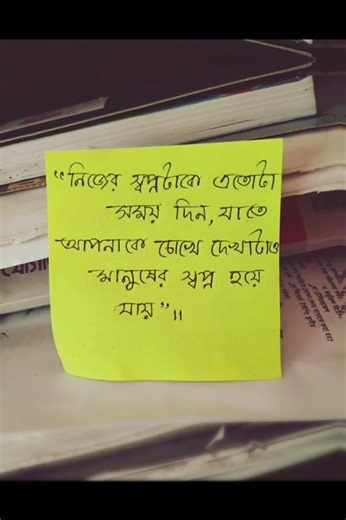 “নিজের স্বপ্নটাকে এতোটা
সময় দিন, যাতে
আপনাকে চোখে দেখাটাও
মানুষের স্বপ্ন হয়ে
যায়”॥